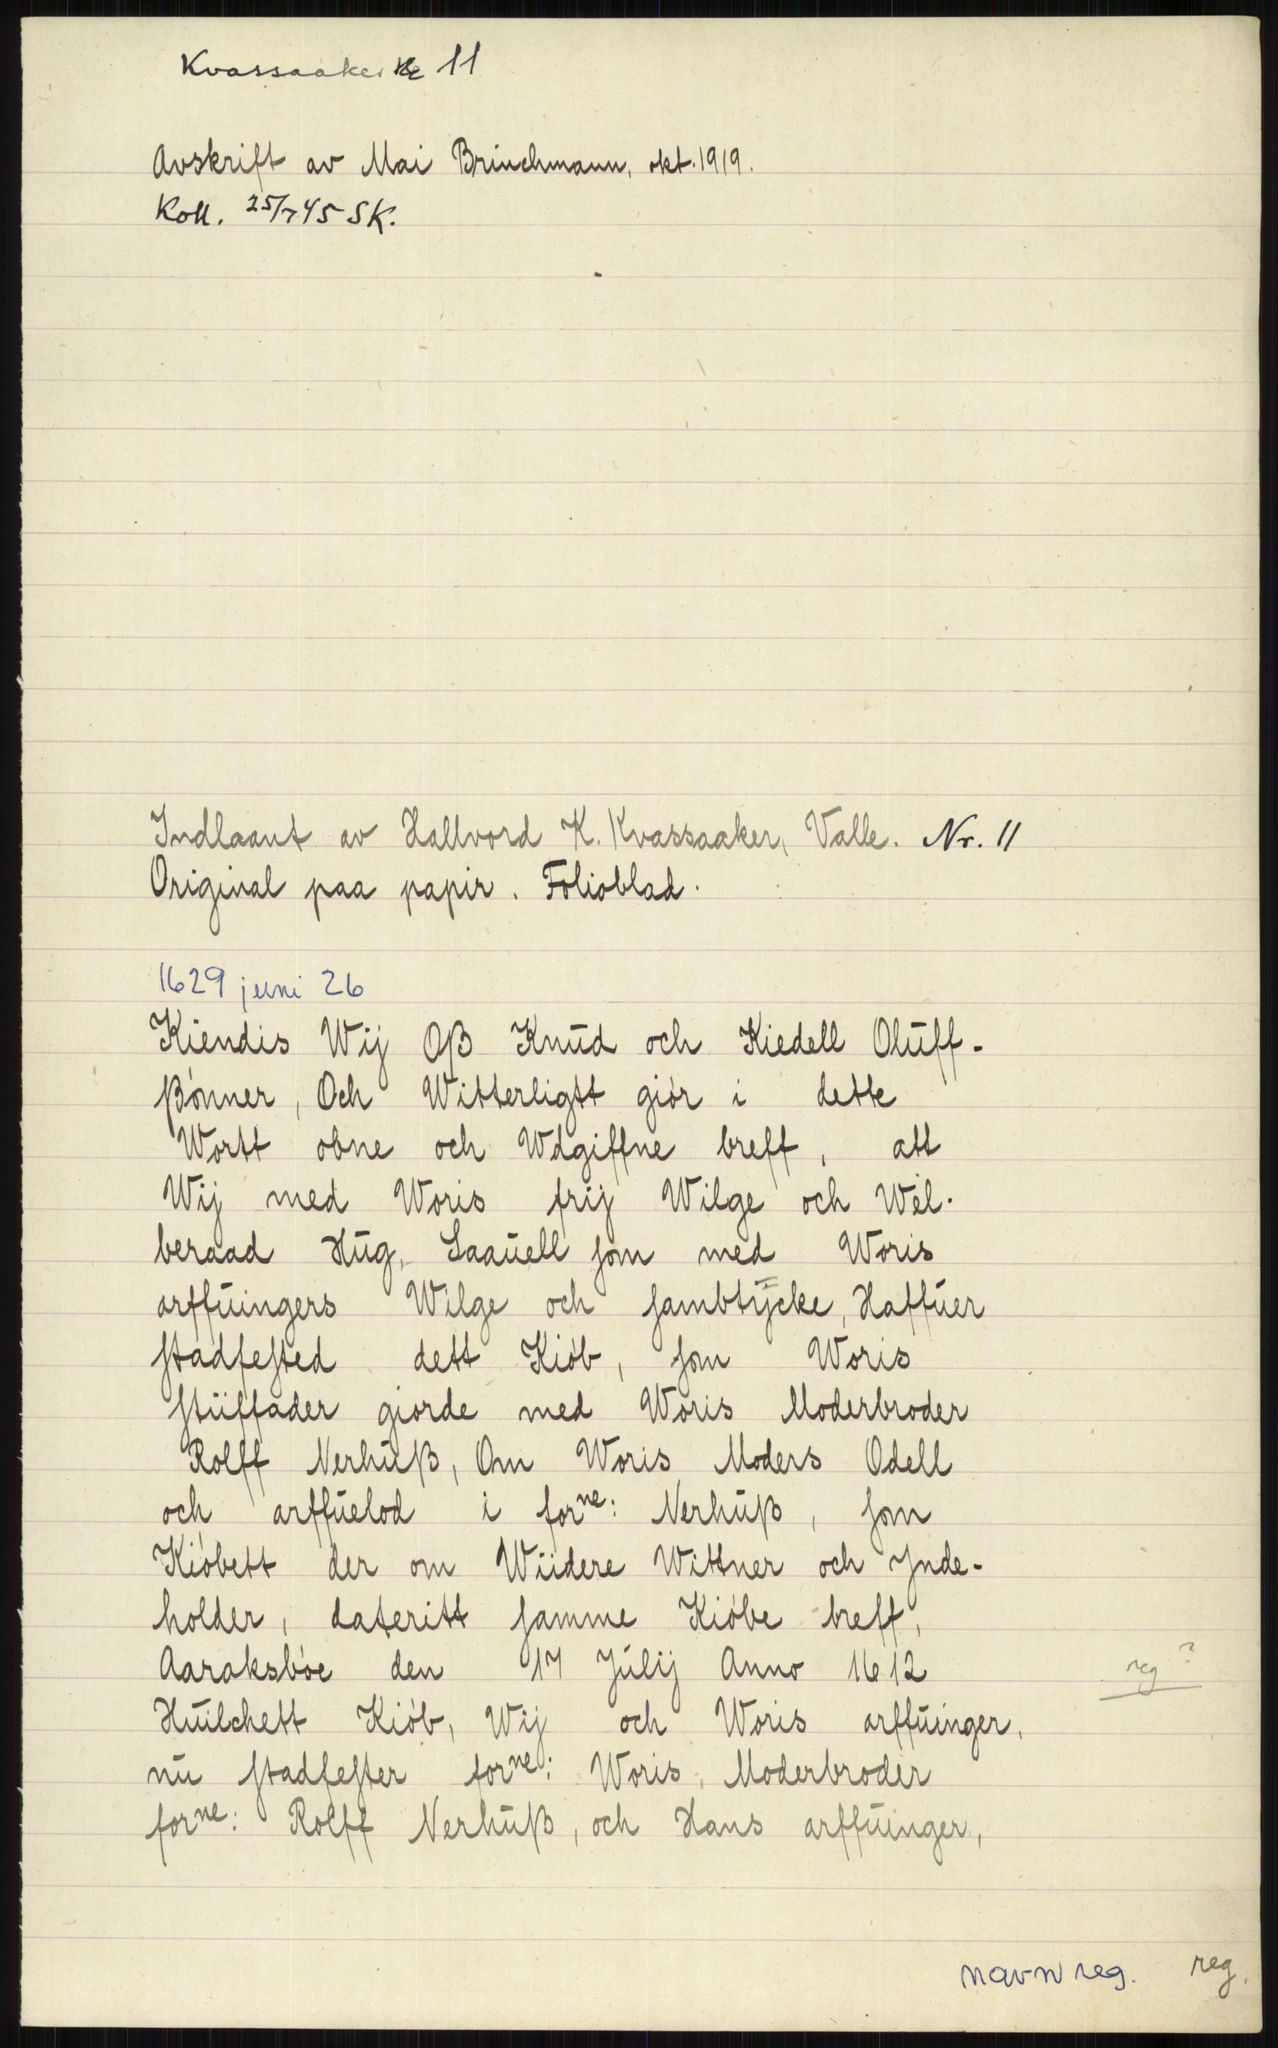 Kvassaaker 11
Avskrift av Mai Brinchmann, okt. 1919.
Koll. 25/7 45 SK.
Indlaant av Hallvord K. Kvassaaker, Valle. Nr. 11
Original paa papir. Folioblad.
1629 juni 26
Kiendis Wij Oß Knud och Kiedell Oluff-
ßónner, Och Witterligtt giór i dette
Wortt obne och Wdgiffne breff, att
Wij med Woris frij Wilge och Wel-
beraad Hug, Saauell som med Woris
arffuingers Wilge och sambtÿcke, Haffuer
stadfested dett Kiób, som Woris
stüffader giorde med Woris Moderbroder
Rolff Nerhuß, Om Woris Moders Odell
och arffuelod i forne: Nerhuß, som
Kióbett der om Wiidere Wittner och Ynde-
holder, dateritt samme Kióbe breff,
Aaraksbóe den 17 Julij Anno 1612
reg ?
Huilchett Kiób, Wij och Woris arffuinger,
nu stadfester forne: Woris, Moderbroder
forne: Rolff Nerhuß, och Hans arffuinger,
navn reg. reg.